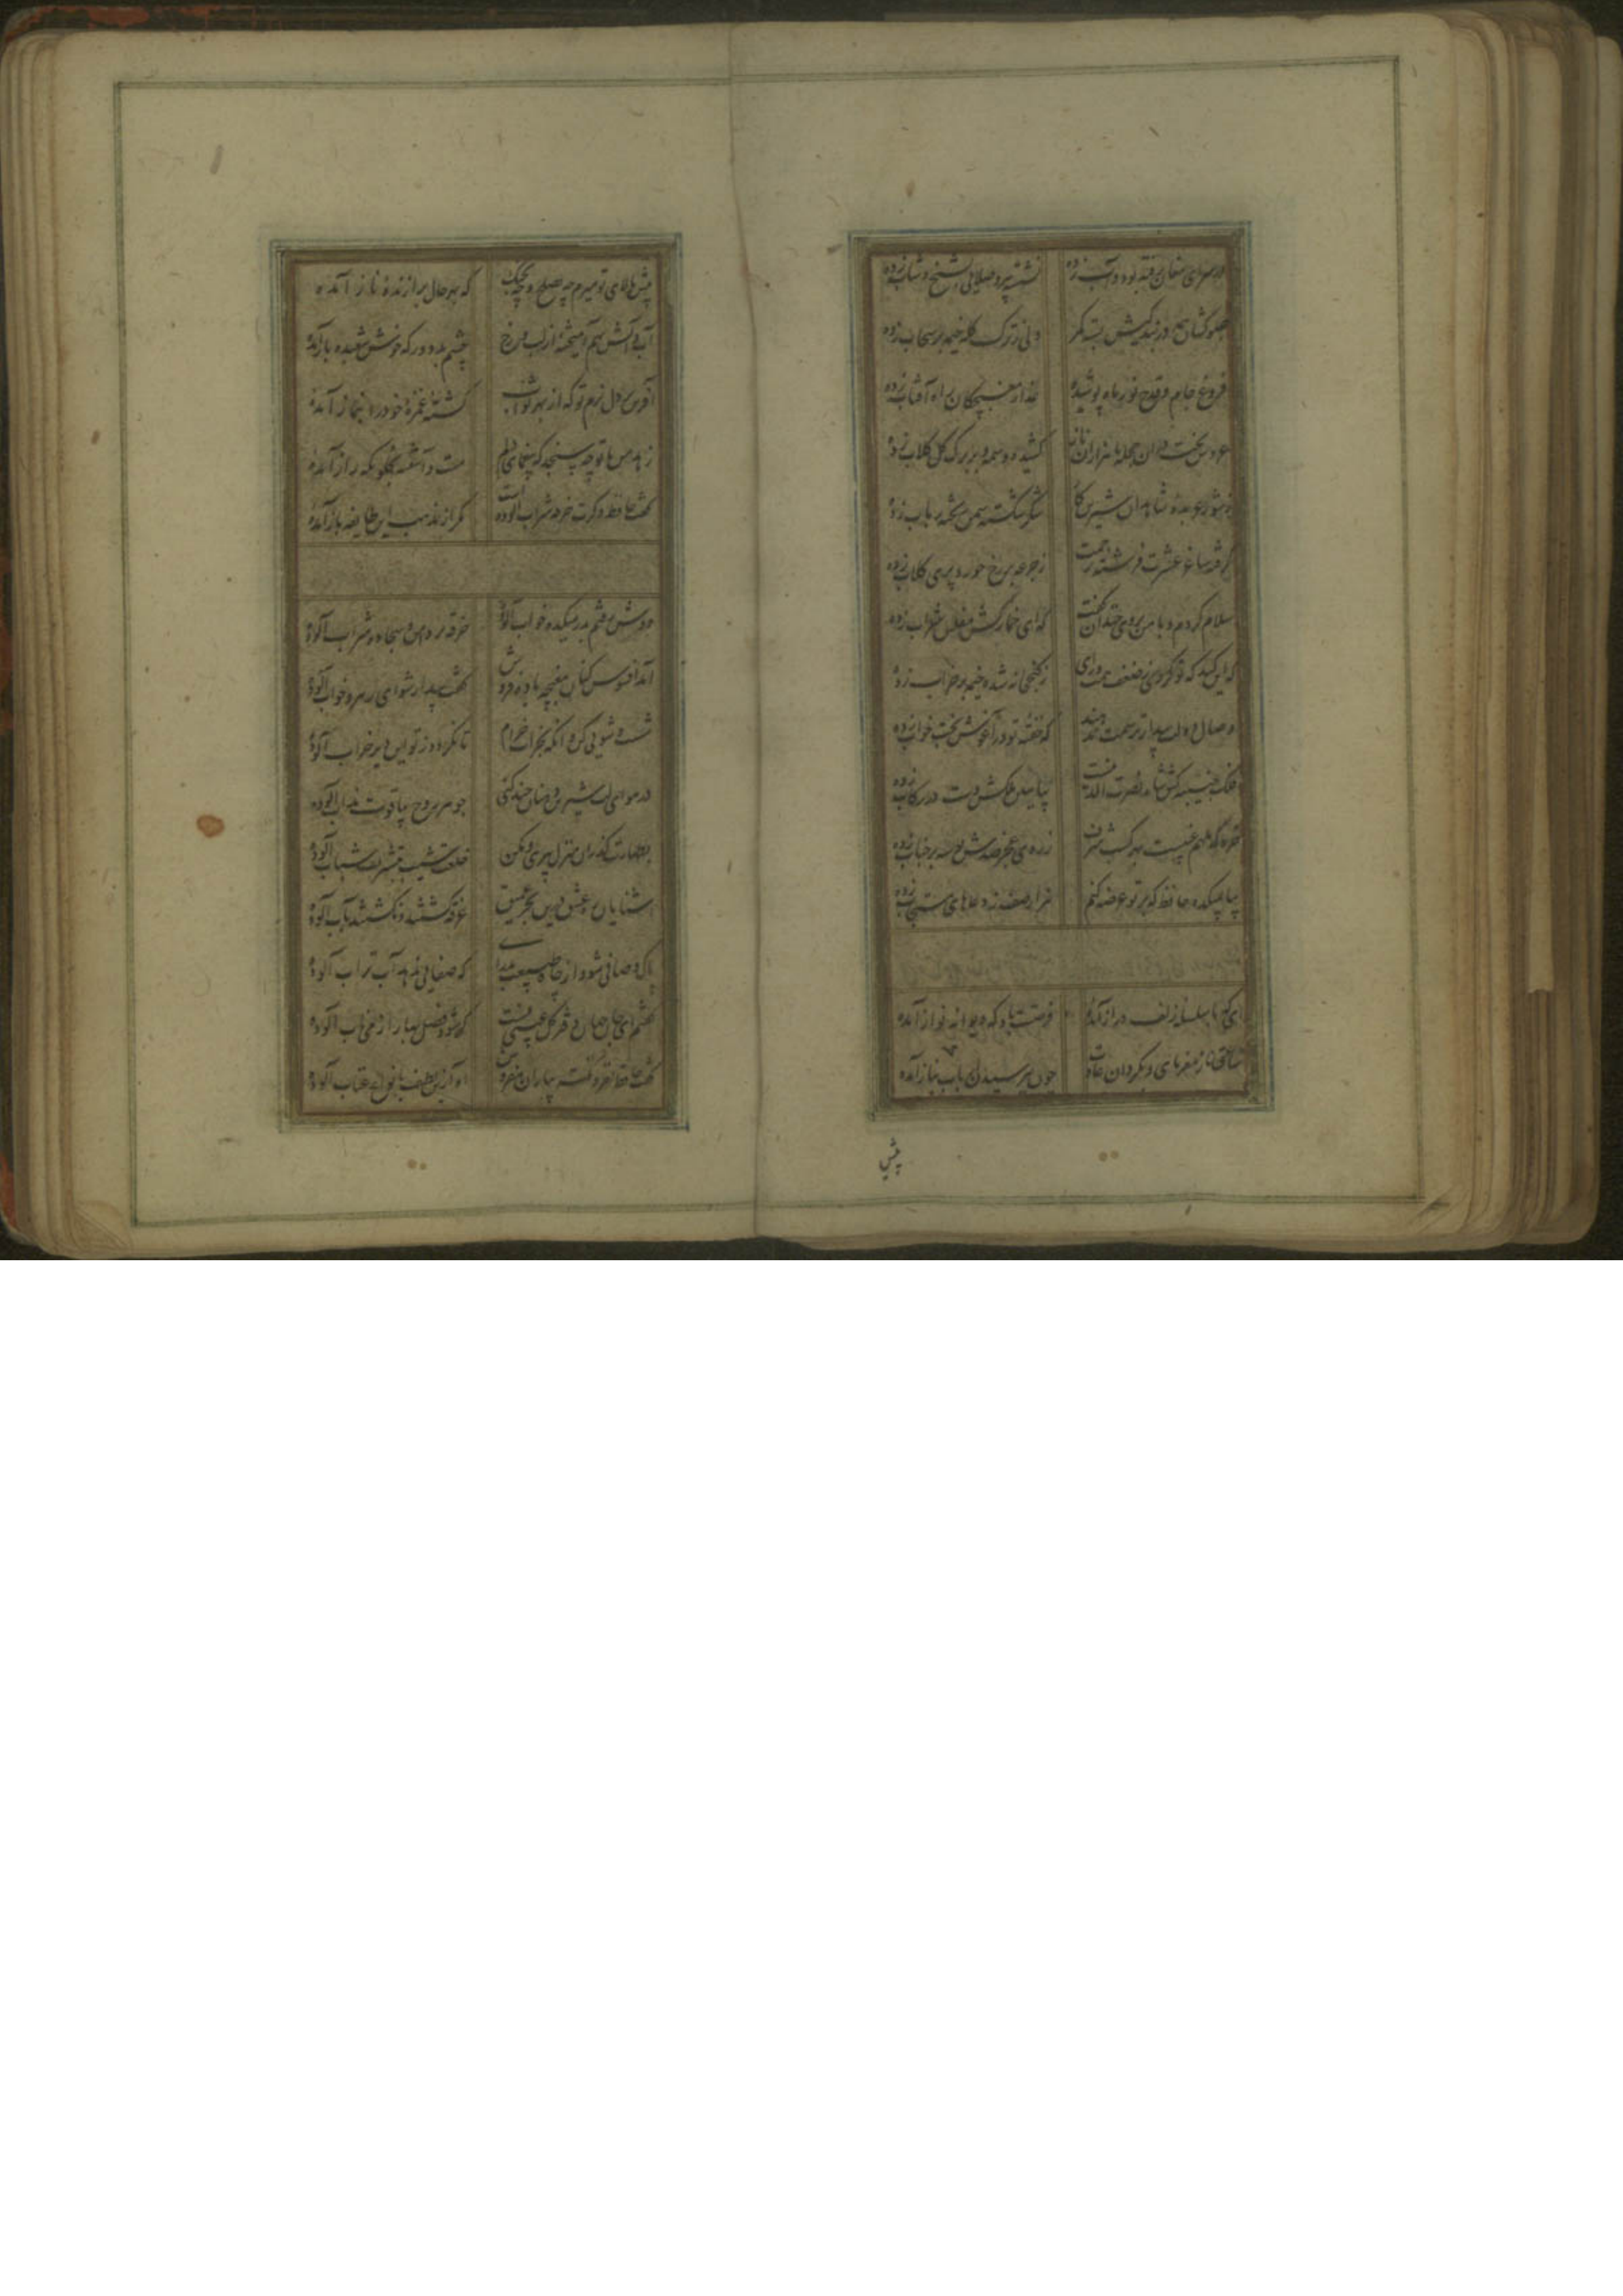 در سرای مغان رفته بود و آب زده
نشسته پیر و صلایی بشیخ و شاب زده
سبوکشان همه در بندکیش بسته کمر
ولی ز ترک کله خیمه بر سحاب زده
فروغ جام و قدح نور ماه پوشیده
عذار مغبچکان راه آفتاب زده
عروس بخت در آن حجله با هزاران ناز
کشیده وسمه و بر برک کل کلاب زده
ز شور و عربده شاهدان شیرین کار
شکر شکسته سمن ریخته رباب زده
گرفته ساغر عشرت فرشته رحمت
ز جرعه بر رخ حور و پری کلاب زده
سلام کردم و با من بروی خندان گفت
که ای خمارکش مفلس شراب زده
که این کند که تو کردی ز ضعف همت و رای
ز کنج خانه شده خیمه بر خراب زده
وصال دولت بیدار ترسمت ندهند
که خفته تو در آغوش بخت خواب زده
فلک جنیبه کش شاه نصرت الدینست
بیا ببین ملکش دست در رکاب زده
خرد که ملهم غیبست بهر کسب شرف
ز روی عجز صدش بوسه بر جناب زده
بیا بمیکده حافظ که بر تو عرضه کنم
هزار صف ز دعاهای مستجاب زده
ای که با سلسله زلف دراز آمده
فرصتت باد که دیوانه نواز آمده
ساعتی ناز مفرمای و بگردان عادت
چون بپرسیدن ارباب نیاز آمده
پیش
پیش بالای تو میرم چه بصلح و چه بجنک
که بهر حال برازنده ناز آمده
آب و آتش بهم آمیخته از لب و رخ
چشم بد دور که خوش شعبده باز آمده
آفرین بر دل نرم تو که از بهر ثواب
کشته غمزه خود را بنماز آمده
زهد من با تو چه سنجد که بیغمای دلم
مست و آشفته بخلوتکه راز آمده
گفت حافظ دگرت خرقه شراب آلوده است
مگر از مذهب این طایفه باز آمده
دوش رفتم بدر میکده خواب آلوده
خرقه تر دامن و سجاده شراب آلوده
آمد افسوس کنان مغبچه باده فروش
گفت بیدار شو ای رهرو خواب آلوده
شست و شویی کن و آنکه بخرابات خرام
تا نکردد ز تو این دیر خراب آلوده
در هوای لب شیرین دهنان چند کنی
جوهر روح بیاقوت مذاب آلوده
بطهارت گذران منزل پیری و مکن
خلعت شیب بتشریف شباب آلوده
آشنایان ره عشق درین بحر عمیق
غرقه گشتند و نگشتند بآب آلوده
پاک و صافی شو و از چاه طبیعت بدرآی
که صفایی ندهد آب تراب آلوده
گفتم ای جان جهان دفتر گل عیبی نیست
که شود فصل بهار از می ناب آلوده
گفت حافظ لغز و نکته بیاران مفروش
آه ازین لطف بانواع عتاب آلوده